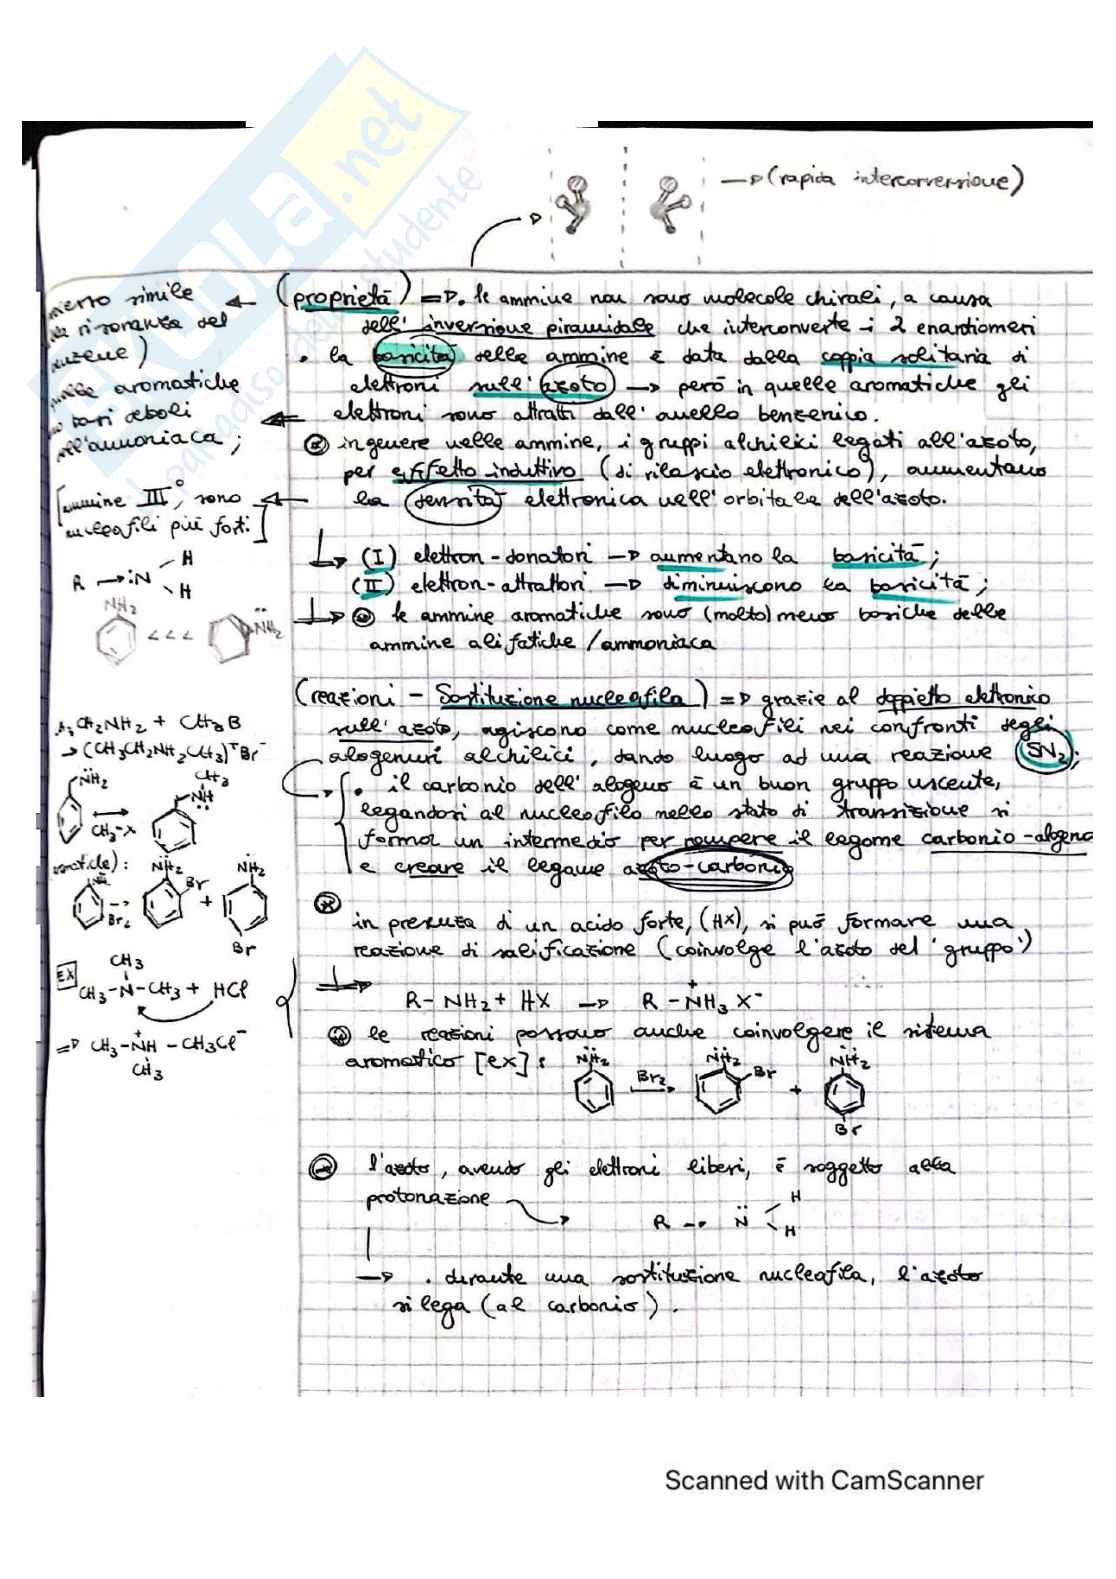 SKUOLA.net
il paradiso dello studente
→ (rapida interconversione)
(proprietà) ⇒ • le ammine non sono molecole chirali, a causa
dell' inversione piramidale che interconverte i 2 enantiomeri
• la basicità delle ammine è data dalla coppia solitaria di
elettroni sull' azoto → però in quelle aromatiche gli
elettroni sono attratti dall' anello benzenico.
in genere nelle ammine, i gruppi alchilici legati all'azoto,
per effetto induttivo (di rilascio elettronico), aumentano
la densità elettronica nell' orbitale dell'azoto.
(I) elettron-donatori → aumentano la basicità;
(II) elettron-attrattori → diminuiscono la basicità;
le ammine aromatiche sono (molto) meno basiche delle
ammine alifatiche /ammoniaca
simile
risonanza del
aromatiche
basi deboli
ammoniaca;
[ammine III°, sono
nucleofili più forti]
R → N̈
H
H
NH2
<<<
N̈H2
(reazioni - Sostituzione nucleofila) ⇒ grazie al doppietto elettronico
sull' azoto, agiscono come nucleofili nei confronti degli
alogenuri alchilici, dando luogo ad una reazione SN2;
• il carbonio dell' alogeno è un buon gruppo uscente,
legandosi al nucleofilo nello stato di transizione si
forma un intermedio per rompere il legame carbonio-alogeno
e creare il legame azoto-carbonio
in presenza di un acido forte, (HX), si può formare una
reazione di salificazione (coinvolge l'azoto del 'gruppo')
R- NH2 + HX → R - N⁺H3 X⁻
le reazioni possono anche coinvolgere il sistema
aromatico [ex] :
N̈H2
Br2
N̈H2
Br
+
N̈H2
Br
l'azoto, avendo gli elettroni liberi, è soggetto alla
protonazione
R → N̈
H
H
→ . durante una sostituzione nucleofila, l'azoto
si lega (al carbonio).
CH2NH2 + CH3B
→ (CH3CH2NH2CH3)⁺Br⁻
N̈H2
CH3-X
CH3
NH
Br2
N̈H2
Br
+
N̈H2
Br
EX
CH3
CH3-N-CH3 + HCl
⇒ CH3-N⁺H - CH3Cl⁻
CH3
Scanned with CamScanner